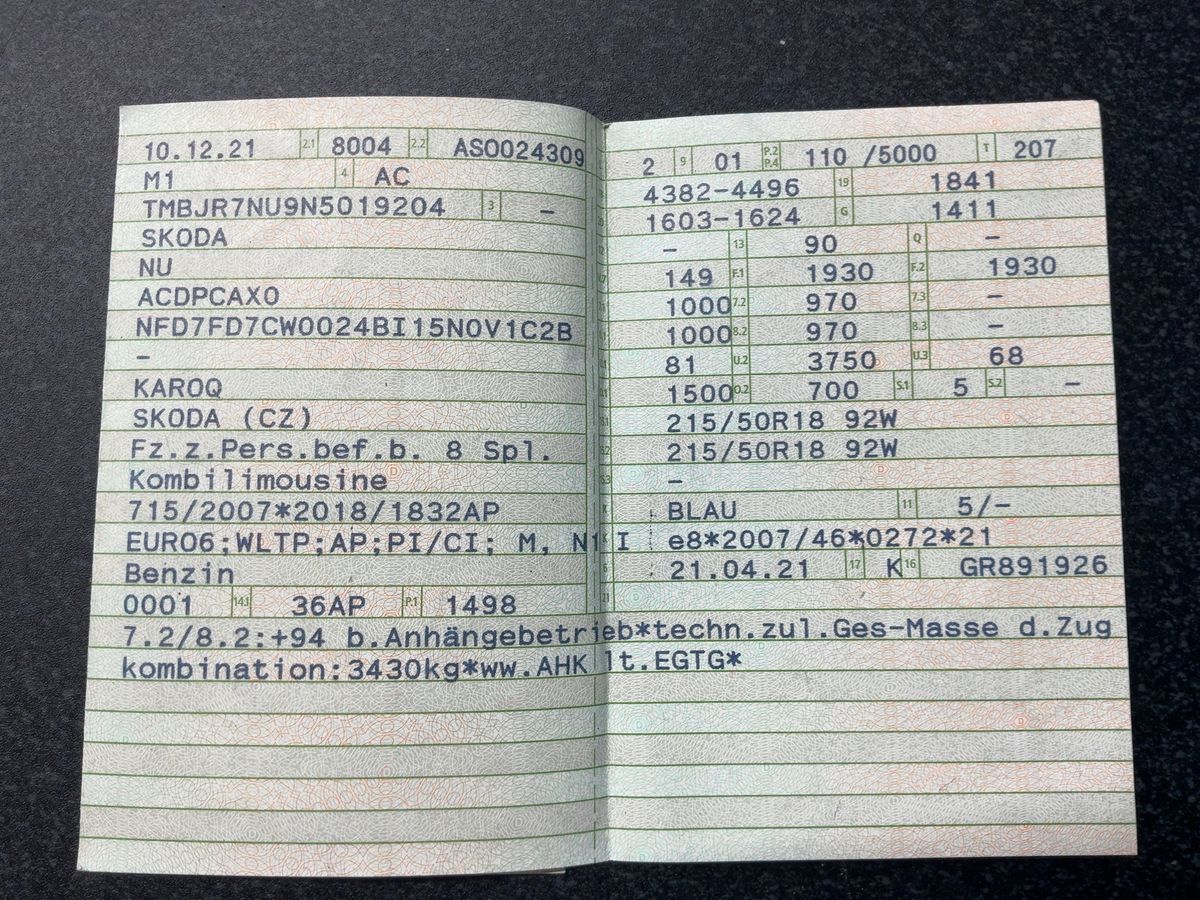 10.12.21 2.1 8004 2.2 AS0024309
M1 4 AC
TMBJR7NU9N5019204 3 –
SKODA
NU
ACDPCAX0
NFD7FD7CW0024BI15N0V1C2B
–
KAROQ
SKODA (CZ)
Fz.z.Pers.bef.b. 8 Spl.
Kombilimousine
715/2007*2018/1832AP
EURO6;WLTP;AP;PI/CI; M, N1 I
Benzin
0001 14.1 36AP P.1 1498
7.2/8.2:+94 b.Anhängebetrieb*techn.zul.Ges-Masse d.Zug
kombination:3430kg*ww.AHK lt.EGTG*
2 9 01 P.2 P.4 110 /5000 T 207
4382-4496 19 1841
1603-1624 G 1411
– 13 90 Q –
149 F.1 1930 F.2 1930
1000 7.2 970 7.3 –
1000 8.2 970 8.3 –
81 U.2 3750 U.3 68
1500 O.2 700 S.1 5 S.2 –
215/50R18 92W
215/50R18 92W
–
BLAU 11 5/–
e8*2007/46*0272*21
21.04.21 17 K 16 GR891926